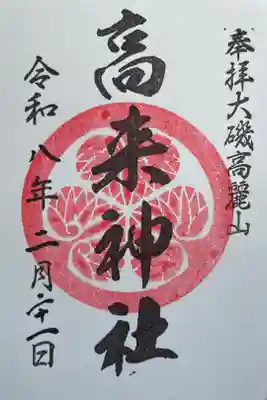 奉拝大磯高麗山
高来神社
令和八年二月廿一日